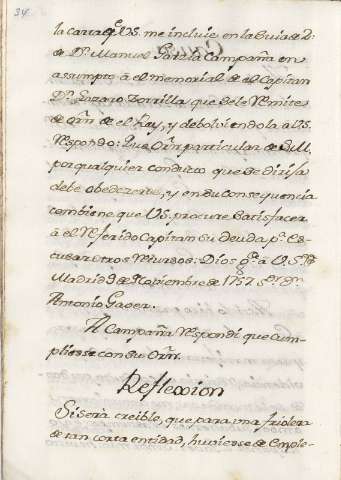 34
la carta q.e V.S. me incluie en la Guia de D.
de D.n Manuel Garcia Campaña en
assumpto à el memorial de el Capitan
D.n Lazaro Zorrilla que se le remite
de orn de el Rey, y debolviendola a V.S.
respondo: Que orn particular de S.M.
por qualquier conducto que se dirija
debe obedezerse, y en su consequencia
combiene que V.S. procure satisfacer
à el referido Capitan su deuda p.a es-
cusar otros recursos: Dios g.e à V.S. m.s a.s
Madrid 9 de Noviembre de 1757. S.or D.n
Antonio Gaver.
A Campaña respondi que cum-
pliesse con su Orn.
Reflexion
Si serà creible, que para una friolera
de tan corta entidad, huviesse de Emple-